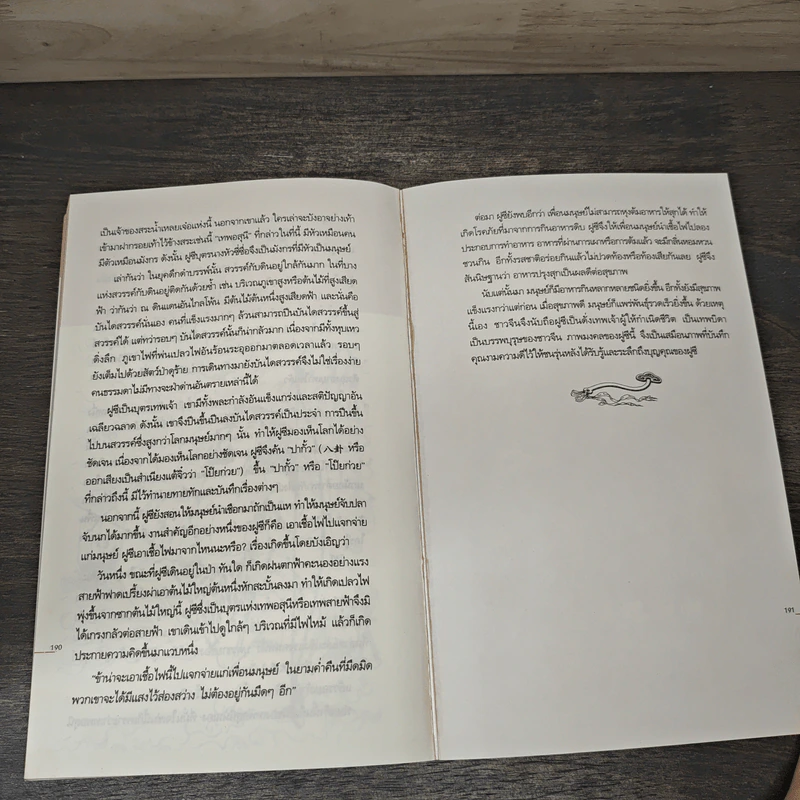 เป็นเจ้าของสระน้ำเหลยเจ๋อแห่งนี้ นอกจากเขาแล้ว ใครเล่าจะบังอาจย่างเท้า
เข้ามาฝากรอยเท้าไว้ข้างสระเช่นนี้ “เทพอสุนี” ที่กล่าวในที่นี้ มีหัวเหมือนคน
มีตัวเหมือนมังกร ดังนั้น ฝูซีบุตรนางหัวซีซื่อจึงเป็นมังกรที่มีหัวเป็นมนุษย์
เล่ากันว่า ในยุคดึกดำบรรพ์นั้น สวรรค์กับดินอยู่ใกล้กันมาก ในที่บาง
แห่งสวรรค์กับดินอยู่ติดกันด้วยซ้ำ เช่น บริเวณภูเขาสูงหรือต้นไม้ที่สูงเสียด
ฟ้า ว่ากันว่า ณ ดินแดนอันไกลโพ้น มีต้นไม้ต้นหนึ่งสูงเสียดฟ้า และนั่นคือ
บันไดสวรรค์นั่นเอง คนที่แข็งแรงมากๆ ล้วนสามารถปีนบันไดสวรรค์ขึ้นสู่
สวรรค์ได้ แต่ทว่ารอบๆ บันไดสวรรค์นั้นก็น่ากลัวมาก เนื่องจากมีทั้งหุบเหว
ดิ่งลึก ภูเขาไฟที่พ่นเปลวไฟอันร้อนระอุออกมาตลอดเวลาแล้ว รอบๆ
ยังเต็มไปด้วยสัตว์ป่าดุร้าย การเดินทางมายังบันไดสวรรค์จึงไม่ใช่เรื่องง่าย
คนธรรมดาไม่มีทางจะฝ่าด่านอันตรายเหล่านี้ได้
ฝูซีเป็นบุตรเทพเจ้า เขามีทั้งพละกำลังอันแข็งแกร่งและสติปัญญาอัน
เฉลียวฉลาด ดังนั้น เขาจึงปีนขึ้นปีนลงบันไดสวรรค์เป็นประจำ การปีนขึ้น
ไปบนสวรรค์ซึ่งสูงกว่าโลกมนุษย์มากๆ นั้น ทำให้ฝูซีมองเห็นโลกได้อย่าง
ชัดเจน เนื่องจากได้มองเห็นโลกอย่างชัดเจน ฝูซีจึงค้น “ปากั้ว” (八卦 หรือ
ออกเสียงเป็นสำเนียงแต้จิ๋วว่า “โป๊ยก่วย”) ขึ้น “ปากั้ว” หรือ “โป๊ยก่วย”
ที่กล่าวถึงนี้ มีไว้ทำนายทายทักและบันทึกเรื่องต่างๆ
นอกจากนี้ ฝูซียังสอนให้มนุษย์นำเชือกมาถักเป็นแห ทำให้มนุษย์จับปลา
จับนกได้มากขึ้น งานสำคัญอีกอย่างหนึ่งของฝูซีก็คือ เอาเชื้อไฟไปแจกจ่าย
แก่มนุษย์ ฝูซีเอาเชื้อไฟมาจากไหนนะหรือ? เรื่องเกิดขึ้นโดยบังเอิญว่า
วันหนึ่ง ขณะที่ฝูซีเดินอยู่ในป่า ทันใด ก็เกิดฝนตกฟ้าคะนองอย่างแรง
สายฟ้าฟาดเปรี้ยงผ่าเอาต้นไม้ใหญ่ต้นหนึ่งหักสะบั้นลงมา ทำให้เกิดเปลวไฟ
พุ่งขึ้นจากซากต้นไม้ใหญ่นี้ ฝูซีซึ่งเป็นบุตรแห่งเทพอสุนีหรือเทพสายฟ้าจึงมิ
ได้เกรงกลัวต่อสายฟ้า เขาเดินเข้าไปดูใกล้ๆ บริเวณที่มีไฟไหม้ แล้วก็เกิด
ประกายความคิดขึ้นมาแวบหนึ่ง
“ข้าน่าจะเอาเชื้อไฟนี้ไปแจกจ่ายแก่เพื่อนมนุษย์ ในยามค่ำคืนที่มืดมิด
พวกเขาจะได้มีแสงไว้ส่องสว่าง ไม่ต้องอยู่กันมืดๆ อีก”
190
ต่อมา ฝูซียังพบอีกว่า เพื่อนมนุษย์ไม่สามารถหุงต้มอาหารให้สุกได้ ทำให้
เกิดโรคภัยที่มาจากการกินอาหารดิบ ฝูซีจึงให้เพื่อนมนุษย์นำเชื้อไฟไปลอง
ประกอบการทำอาหาร อาหารที่ผ่านการเผาหรือการต้มแล้ว จะมีกลิ่นหอมหวน
ชวนกิน อีกทั้งรสชาติอร่อยกินแล้วไม่ปวดท้องหรือท้องเสียกันเลย ฝูซีจึง
สันนิษฐานว่า อาหารปรุงสุกเป็นผลดีต่อสุขภาพ
นับแต่นั้นมา มนุษย์ก็มีอาหารกินหลากหลายชนิดยิ่งขึ้น อีกทั้งยังมีสุขภาพ
แข็งแรงกว่าแต่ก่อน เมื่อสุขภาพดี มนุษย์ก็แพร่พันธุ์รวดเร็วยิ่งขึ้น ด้วยเหตุ
นี้เอง ชาวจีนจึงนับถือฝูซีเป็นดั่งเทพเจ้าผู้ให้กำเนิดชีวิต เป็นเทพบิดา
เป็นบรรพบุรุษของชาวจีน ภาพมงคลของฝูซีนี้ จึงเป็นเสมือนภาพที่บันทึก
คุณงามความดีไว้ให้ชนรุ่นหลังได้รับรู้และระลึกถึงบุญคุณของฝูซี
191